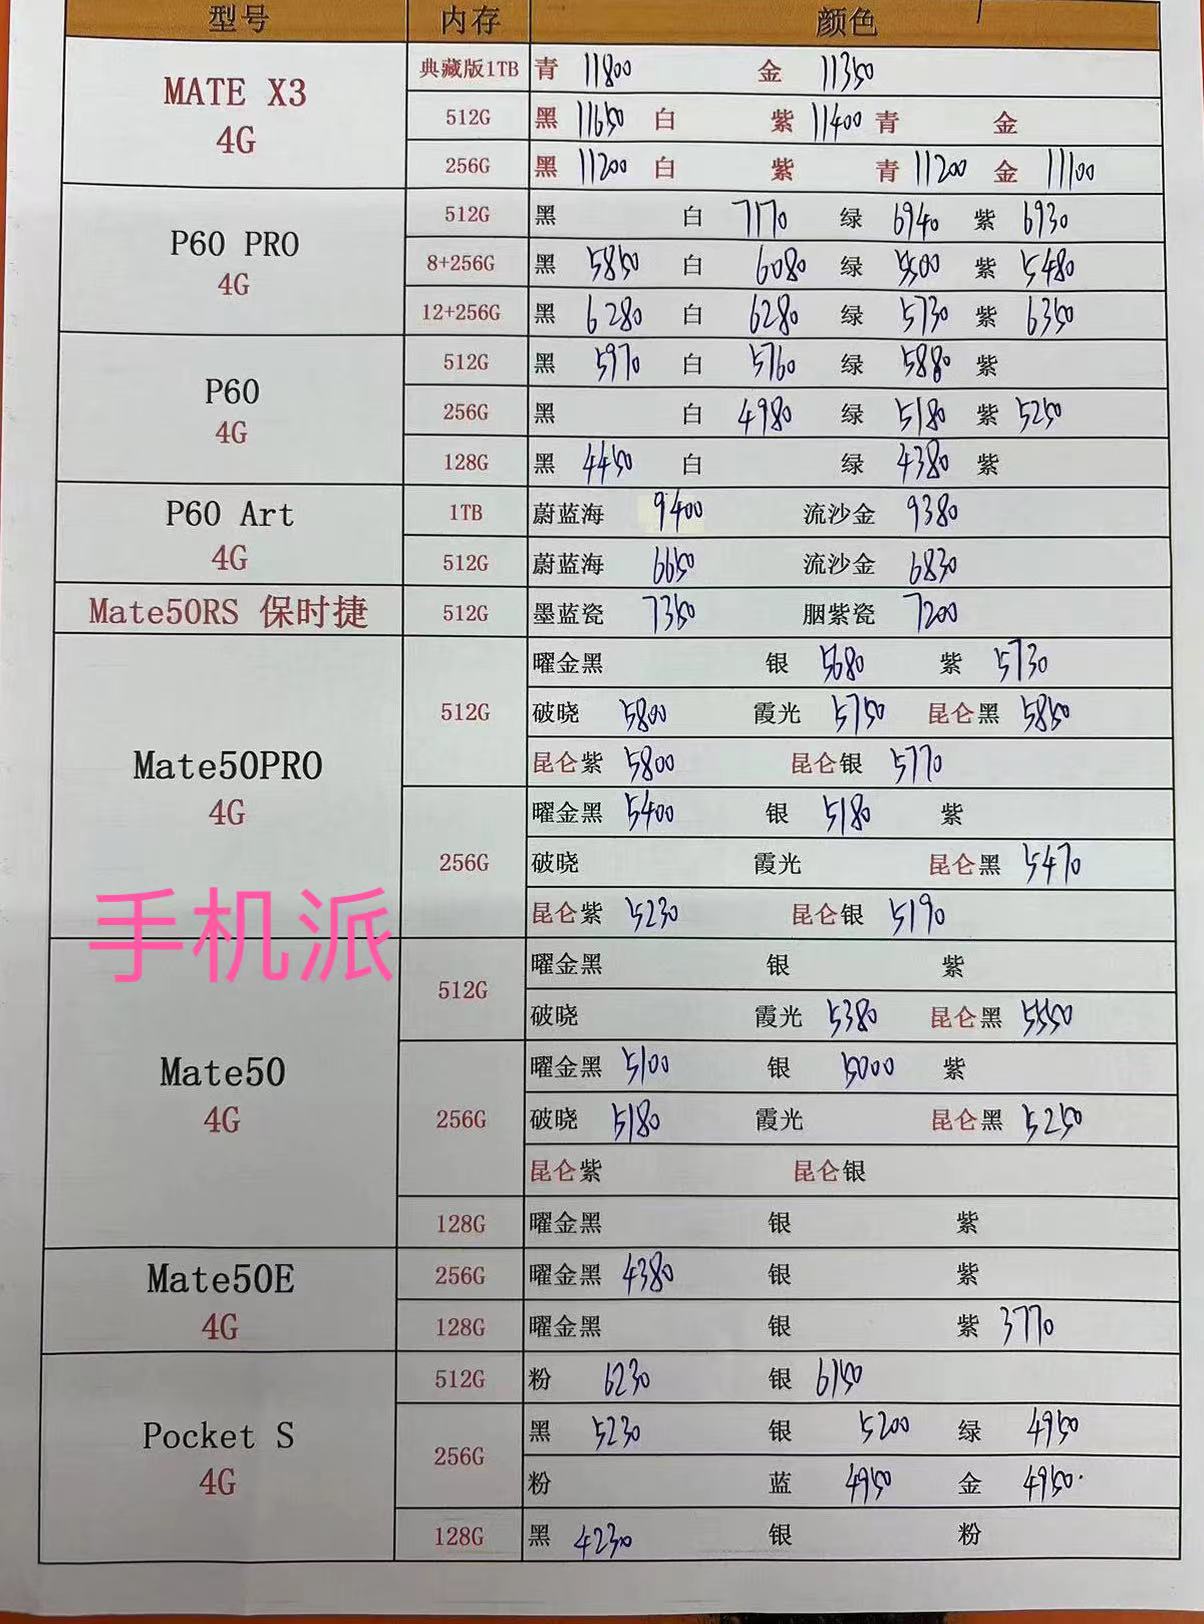 型号 内存 颜色
MATE X3
4G
典藏版1TB 青 11800 金 11350
512G 黑 11650 白 紫 11400 青 金
256G 黑 11200 白 紫 青 11200 金 11100
P60 PRO
4G
512G 黑 白 7170 绿 6940 紫 6930
8+256G 黑 5850 白 6080 绿 5500 紫 5480
12+256G 黑 6280 白 6280 绿 5730 紫 6350
P60
4G
512G 黑 5970 白 5760 绿 5880 紫
256G 黑 白 4980 绿 5180 紫 5250
128G 黑 4450 白 绿 4380 紫
P60 Art
4G
1TB 蔚蓝海 9400 流沙金 9380
512G 蔚蓝海 6650 流沙金 6830
Mate50RS 保时捷 512G 墨蓝瓷 7350 胭紫瓷 7200
Mate50PRO
4G
512G
曜金黑 银 5680 紫 5730
破晓 5800 霞光 5750 昆仑黑 5850
昆仑紫 5800 昆仑银 5770
256G
曜金黑 5400 银 5180 紫
破晓 霞光 昆仑黑 5470
昆仑紫 5230 昆仑银 5190
手机派
Mate50
4G
512G
曜金黑 银 紫
破晓 霞光 5380 昆仑黑 5550
256G
曜金黑 5100 银 5000 紫
破晓 5180 霞光 昆仑黑 5250
昆仑紫 昆仑银
128G 曜金黑 银 紫
Mate50E
4G
256G 曜金黑 4380 银 紫
128G 曜金黑 银 紫 3770
Pocket S
4G
512G 粉 6230 银 6150
256G
黑 5230 银 5200 绿 4950
粉 蓝 4950 金 4950
128G 黑 4230 银 粉